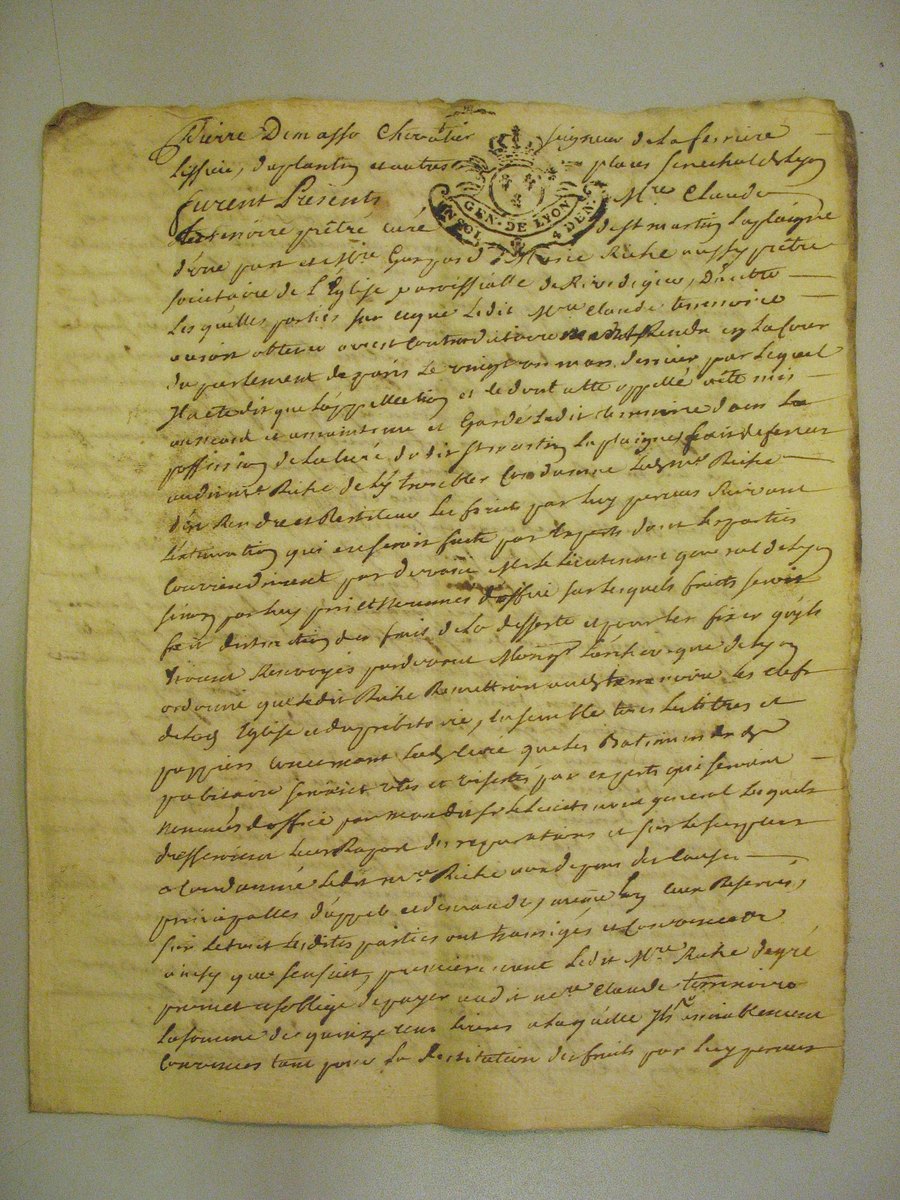 Pierre Demasso Chevalier seigneur de La ferriere
Lissieu, duplantin et autres places senechal de Lyon
furent Presents Mre. Claude
GEN. DE LYON
UN SOL 4 DEN.
terrenoire prêtre curé de st martin Laplaigne
d'une part et Mre Gaspard Riche aussy prêtre
societaire de L'Église parroissialle de Rive de gier, D'autre
Les quelles parties sur ce que Ledit Mre Claude terrenoire
auroit obtenu arrest Contradictoirement Rendu en La Cour
du parlement de paris Le vingt un mars dernier par Lequel
Il a eté dit que L'appellation et ce dont a eté appellé a eté mis
au neant et a maintenu et Gardé Ledit terrenoire dans La
possession de La Curé dudit St martin Laplaigne fait defenses
audit mre Riche de L'y troubler Condamne Ledit mre Riche
d'en Rendre et Restituer Les fruits par Luy perceus suivant
L'estimation qui en seroit faite par Experts dont Les parties
Conviendroient pardevant Mr Le Lieutenant general de Lyon
sinon par Luy pris et Nommés d'office sur Lesquels fruits seroit
fait distraction des frais de La desserte et pour Les fixer qu'ils
seroient Renvoyés pardevant Monsgr L'archeveque de Lyon
ordonné que Ledit Riche Remettroit audit terrenoire Les clefs
de Lad Eglise et du presbitaire, Ensemble tous Les titres et
pappiers Concernant Lad Curé que Les Batiments du
presbitaire seroient vûs et visités par experts qui seroient
Nommés d'office par mondit sr Le Lieutenant general Lesquels
dresseroient Leur Raport des reparations et sur Le surplus
a Condamné Ledit mre Riche aux depens des Causes
principalles d'appel et demandes,
sur Le tout Lesdites parties ont transigés et Convenu
ainsy que s'ensuit, premierement Ledit Mre Riche de gré
promet et s'oblige de payer audit mre Claude terrenoire
La somme de quinze cent Livres a Laquelle Ils ont amiablement
Convenues tant pour La Restitution des fruits par Luy perceus